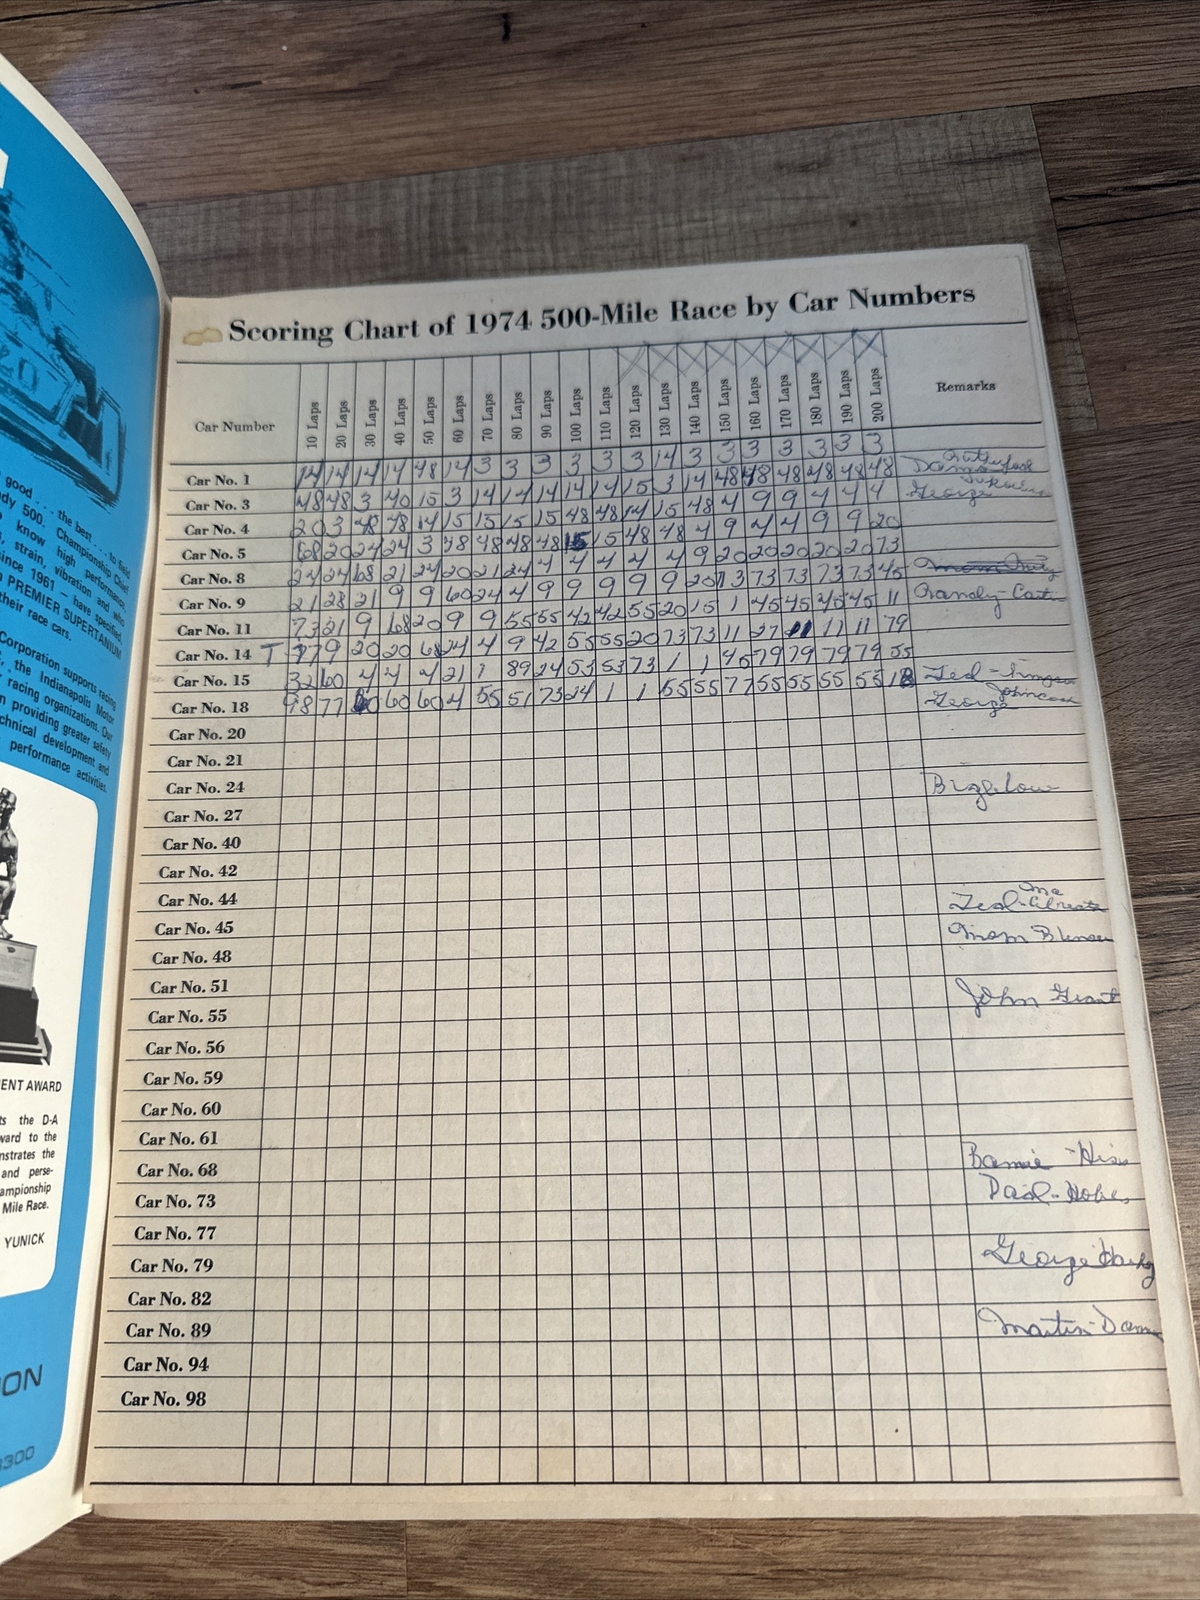 20
good . . . the best . . . to field
dy 500. Championship Chief
know high performance,
, strain, vibration and
since 1961 — have specified,
PREMIER SUPERTANIUM
their race cars.
Corporation supports racing
, the Indianapolis Motor
racing organizations. Our
n providing greater safety
chnical development and
performance activities.
ENT AWARD
ts the D-A
ward to the
nstrates the
and perse-
ampionship
Mile Race.
YUNICK
ON
300
Scoring Chart of 1974 500-Mile Race by Car Numbers
Car Number 10 Laps 20 Laps 30 Laps 40 Laps 50 Laps 60 Laps 70 Laps 80 Laps 90 Laps 100 Laps 110 Laps 120 Laps 130 Laps 140 Laps 150 Laps 160 Laps 170 Laps 180 Laps 190 Laps 200 Laps Remarks
Car No. 1 14 14 14 14 48 14 3 3 3 3 3 3 14 3 3 3 3 3 3 3
Car No. 3 48 48 3 40 15 3 14 14 14 14 14 15 3 14 48 48 48 48 48 48 George
Car No. 4 20 3 48 48 14 15 15 15 15 48 48 14 15 48 4 9 9 4 4 4
Car No. 5 68 20 24 24 3 48 48 48 48 15 15 48 48 4 9 4 4 9 9 20
Car No. 8 24 24 68 21 24 20 21 24 4 4 4 4 4 9 20 20 20 20 20 73
Car No. 9 21 28 21 9 9 60 24 4 9 9 9 9 9 20 73 73 73 73 73 45
Car No. 11 73 21 9 68 20 9 9 55 55 42 42 55 20 15 1 45 45 45 45 11
Car No. 14 T 77 9 20 20 68 24 4 9 42 55 55 20 73 73 11 27 11 11 11 79
Car No. 15 32 60 4 4 4 21 1 89 24 53 53 73 1 1 45 79 79 79 79 55
Car No. 18 98 77 60 60 60 4 55 51 73 24 1 1 55 55 77 55 55 55 55 18 George Johncock
Car No. 20
Car No. 21
Car No. 24 Bigelow
Car No. 27
Car No. 40
Car No. 42
Car No. 44
Car No. 45 Mom
Car No. 48
Car No. 51 John Grant
Car No. 55
Car No. 56
Car No. 59
Car No. 60
Car No. 61
Car No. 68 Hiss
Car No. 73 Hobes
Car No. 77
Car No. 79 George
Car No. 82
Car No. 89 Martin
Car No. 94
Car No. 98